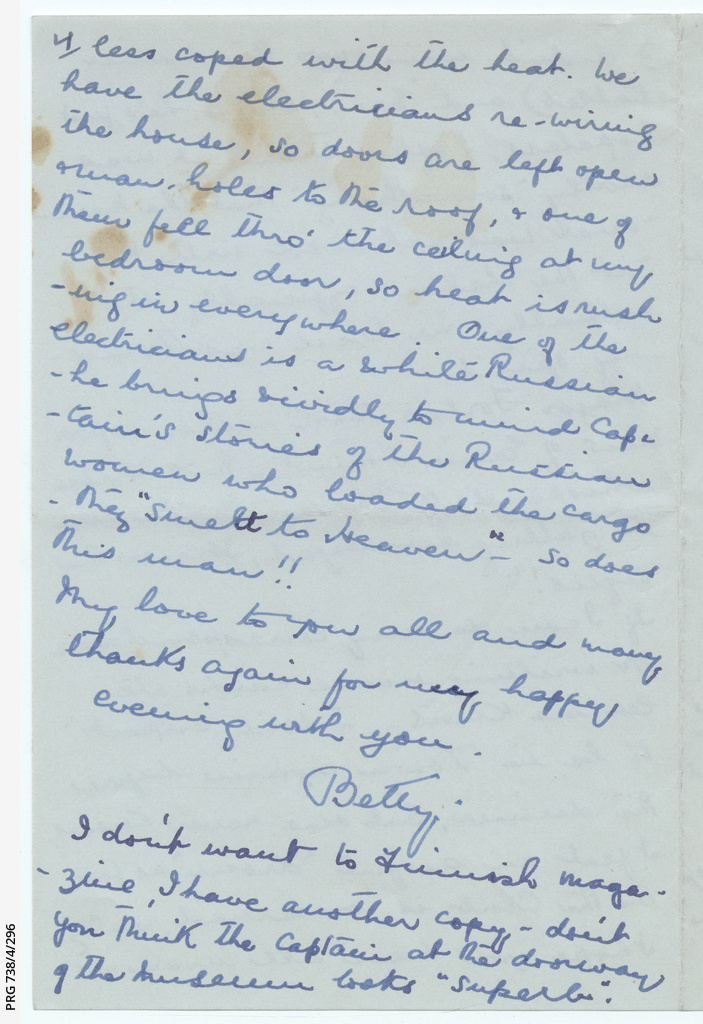 4/ less coped with the heat. We
have the electricians re-wiring
the house, so doors are left open
& man. holes to the roof, & one of
them fell thro' the ceiling at my
bedroom door, so heat is rush
-ing in everywhere. One of the
electricians is a White Russian
- he brings vividly to mind Cap-
-tain's stories of the Russian
women who loaded the cargo
- they "smelt to Heaven" - so does
this man!!
My love to you all and many
thanks again for very happy
evening with you.
Betty.
I don't want to Finnish maga-
-zine, I have another copy - don't
you think the Captain at the doorway
of the museum looks "superb".
PRG 738/4/296